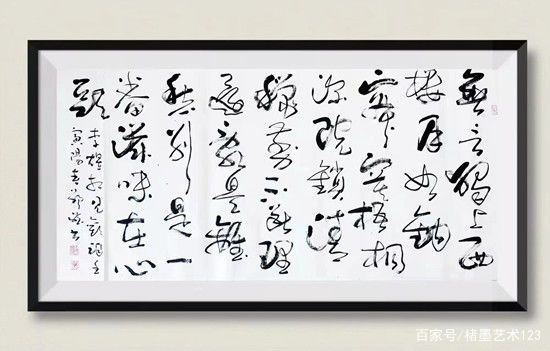 無言獨上西
樓月如鈎
寂寞梧桐
深院鎖清
秋剪不斷理
還亂是離
愁別是一
番滋味在心
頭
李煜相見歡詞壬
寅陽春
百家号/楮墨艺术123